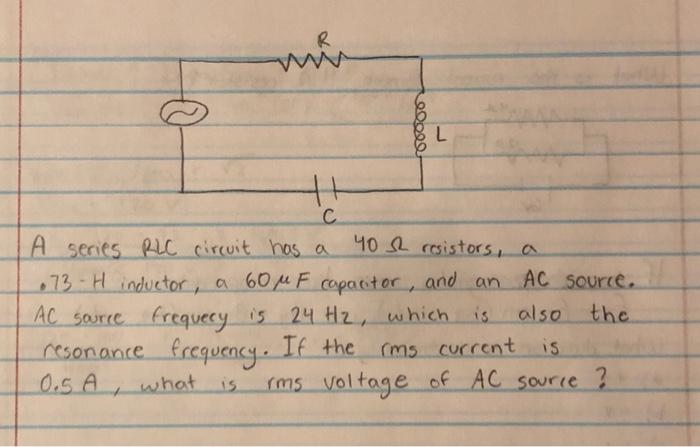 R
L
C
A series RLC circuit has a 40 Ω resistors, a
.73-H inductor, a 60 μF capacitor, and an AC source.
AC source frequecy is 24 Hz, which is also the
resonance frequency. If the rms current is
0.5 A, what is rms voltage of AC source?